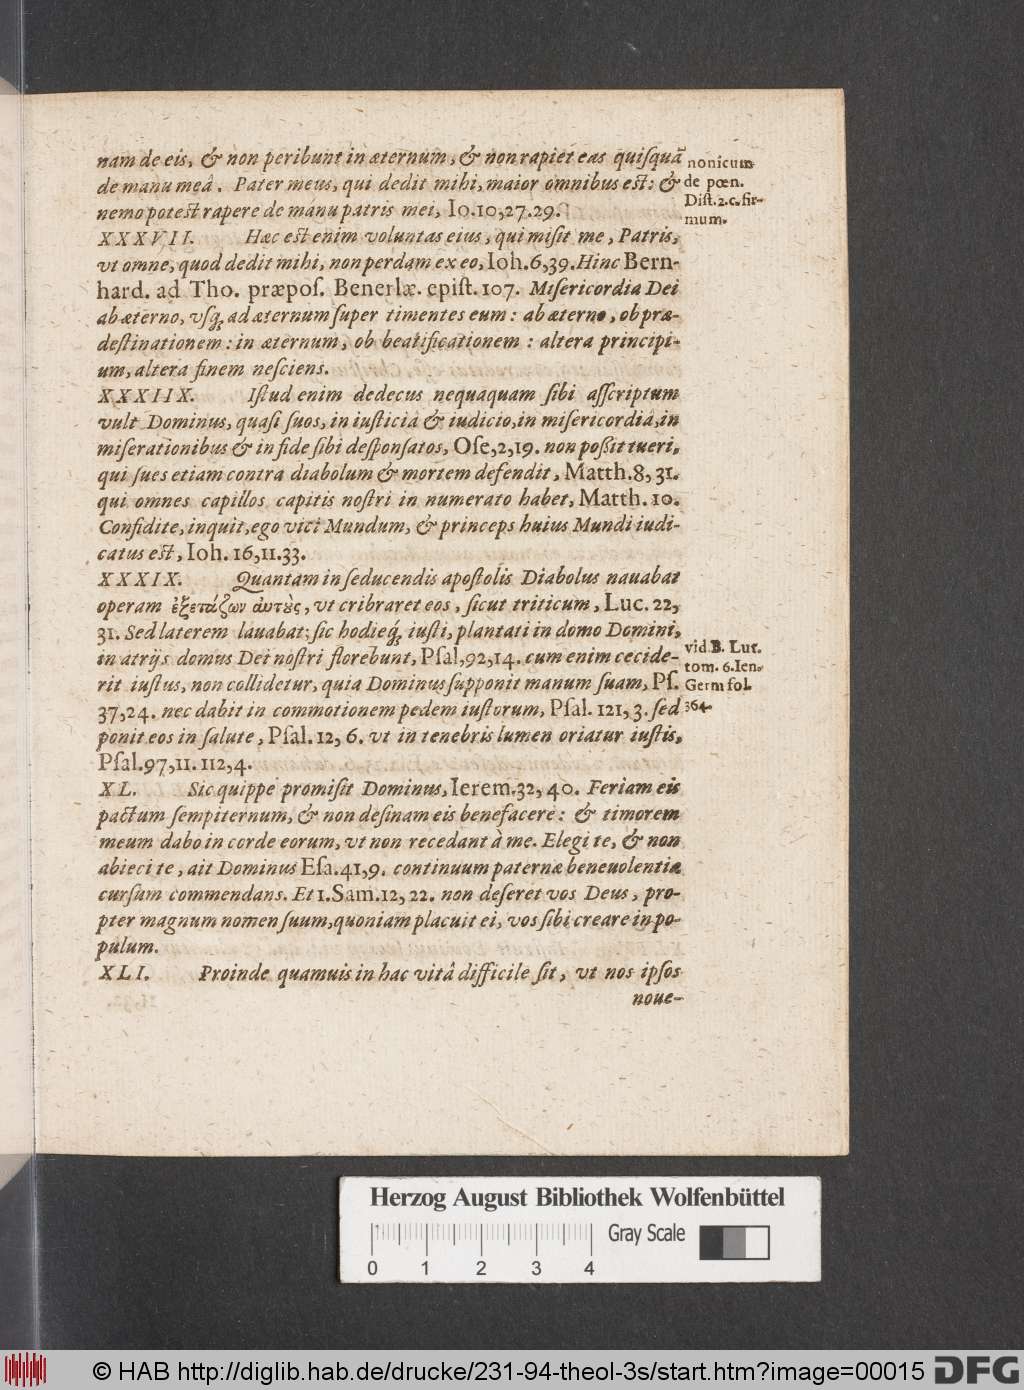 nam de eis, & non peribunt in æternum, & non rapiet eas quiſquã
de manu meâ. Pater meus, qui dedit mihi, maior omnibus eſt: &
nemo poteſt rapere de manu patris mei, Io.10,27.29.
nonicum
de pœn.
Diſt.2.c.fir-
mum.
XXXVII. Hæc eſt enim voluntas eius, qui miſit me, Patris,
vt omne, quod dedit mihi, non perdam ex eo, Ioh.6,39. Hinc Bern-
hard. ad Tho. præpoſ. Benerlæ. epiſt. 107. Miſericordia Dei
ab æterno, vſq́; ad æternum ſuper timentes eum: ab æterno, ob præ-
deſtinationem: in æternum, ob beatificationem: altera principi-
um, altera finem neſciens.
XXXIIX. Iſtud enim dedecus nequaquam ſibi aſſcriptum
vult Dominus, quaſi ſuos, in iuſticia & iudicio, in miſericordia, in
miſerationibus & in fide ſibi deſponſatos, Oſe,2,19. non poßit tueri,
qui ſues etiam contra diabolum & mortem defendit, Matth.8,31.
qui omnes capillos capitis noſtri in numerato habet, Matth. 10.
Confidite, inquit, ego vici Mundum, & princeps huius Mundi iudi-
catus eſt, Ioh. 16,11.33.
XXXIX. Quantam in ſeducendis apoſtolis Diabolus nauabat
operam ἐξετάζων αὐτοὺς, vt cribraret eos, ſicut triticum, Luc. 22,
31. Sed laterem lauabat: ſic hodieq́; iuſti, plantati in domo Domini,
in atrijs domus Dei noſtri florebunt, Pſal,92,14. cum enim cecide-
rit iuſtus, non collidetur, quia Dominus ſupponit manum ſuam, Pſ.
37,24. nec dabit in commotionem pedem iuſtorum, Pſal. 121,3. ſed
ponit eos in ſalute, Pſal. 12, 6. vt in tenebris lumen oriatur iuſtis,
Pſal.97,11. 112,4.
vid. B. Lut.
tom. 6. Ien.
Germ fol.
364.
XL. Sic quippe promiſit Dominus, Ierem.32, 40. Feriam eis
pactum ſempiternum, & non deſinam eis benefacere: & timorem
meum dabo in corde eorum, vt non recedant à me. Elegi te, & non
abieci te, ait Dominus Eſa.41,9. continuum paternæ beneuolentiæ
curſum commendans. Et 1.Sam.12, 22. non deſeret vos Deus, pro-
pter magnum nomen ſuum, quoniam placuit ei, vos ſibi creare in po-
pulum.
XLI. Proinde quamuis in hac vitâ difficile ſit, vt nos ipſos
noue-
Herzog August Bibliothek Wolfenbüttel
0 1 2 3 4
Gray Scale
© HAB http://diglib.hab.de/drucke/231-94-theol-3s/start.htm?image=00015
DFG